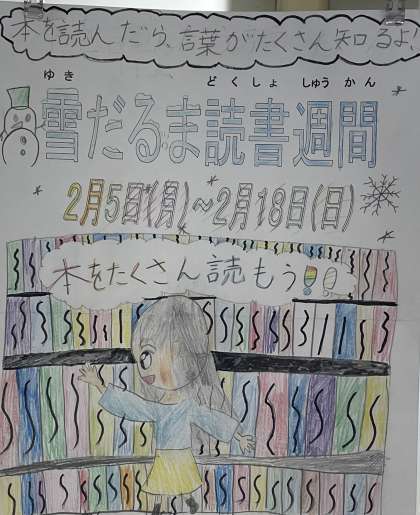 本を読んだら、言葉がたくさん知るよ!
ゆき どくしょ しゅうかん
雪だるま読書週間
2月5日(月)～2月18日(日)
本をたくさん読もう!!